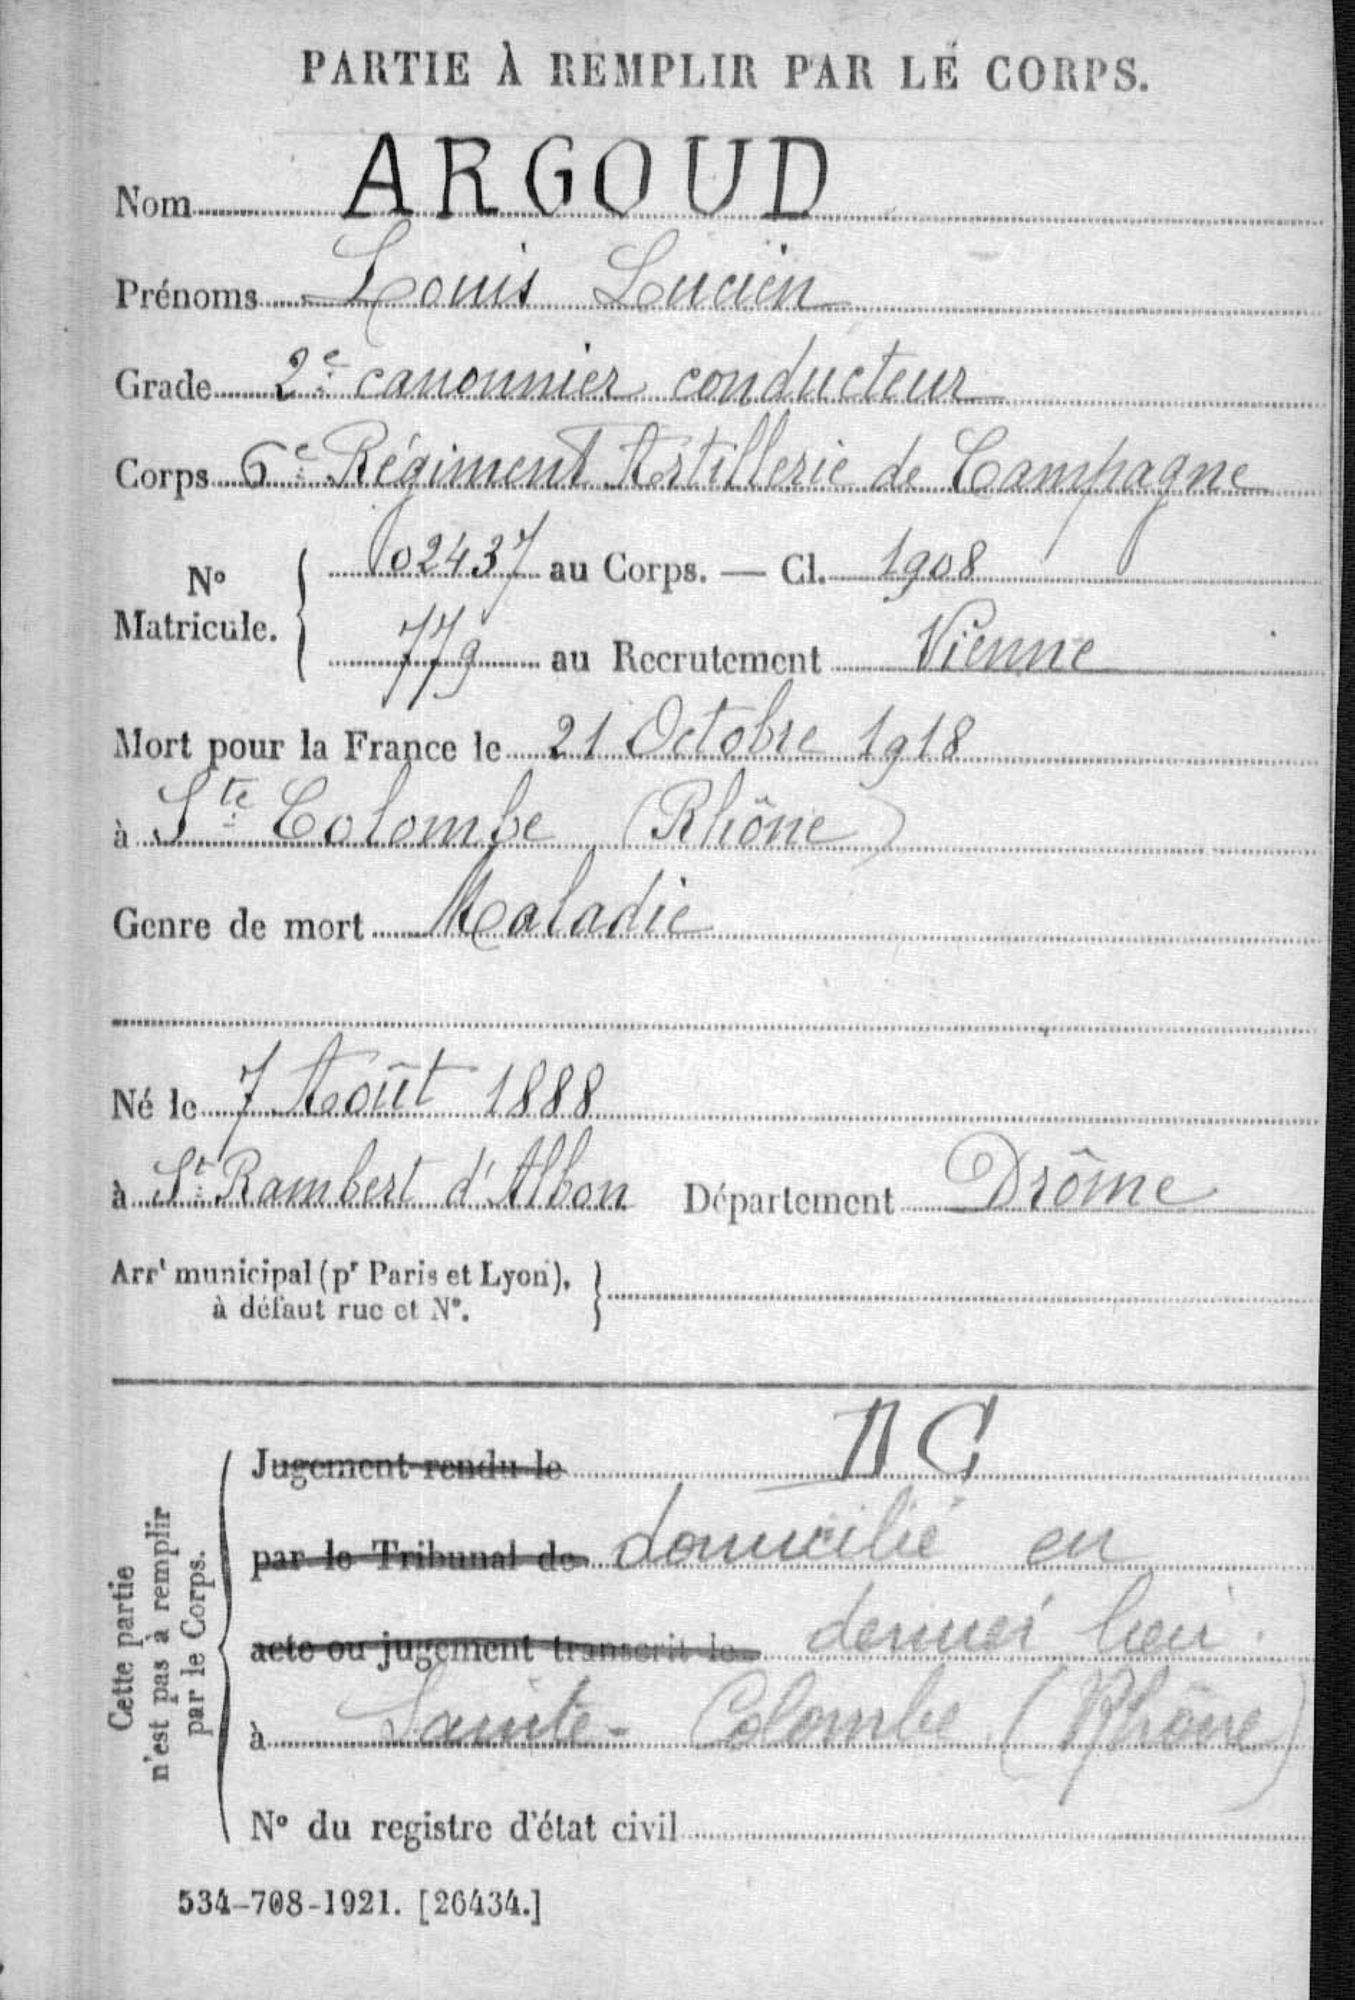 PARTIE À REMPLIR PAR LE CORPS.
Nom ARGOUD
Prénoms Louis Lucien
Grade 2e canonnier conducteur
Corps 6e Régiment Artillerie de Campagne
No Matricule. { 02437 au Corps. — Cl. 1908
779 au Recrutement Vienne
Mort pour la France le 21 Octobre 1918
à Ste Colombe (Rhône)
Genre de mort Maladie
Né le 7 Août 1888
à St Rambert d'Albon Département Drôme
Arrt municipal (pr Paris et Lyon), }
à défaut rue et No.
Cette partie
n'est pas à remplir
par le Corps.
Jugement rendu le
par le Tribunal de domicilié en
acte ou jugement transcrit le dernier lieu
à Sainte-Colombe (Rhône)
No du registre d'état civil
534-708-1921. [26434.]